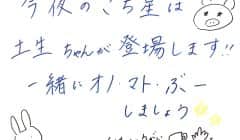 今夜のごち星は
土生ちゃんが登場します!!
一緒にオノ・マト・ぶー
しましょう